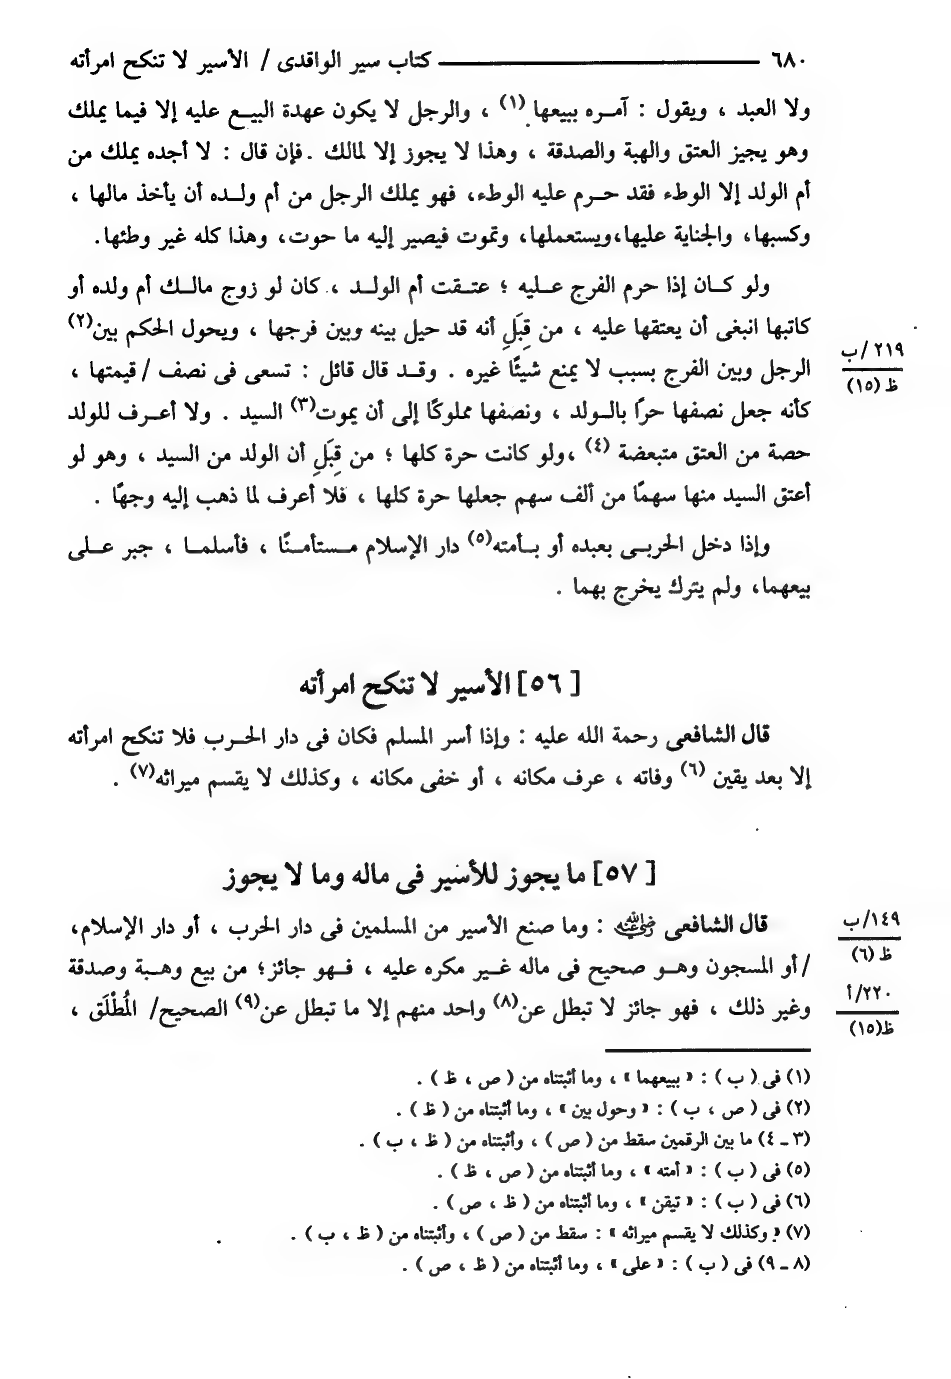 ٦٨٠ ـــــــ كتاب سير الواقدى / الأسير لا تنكح امرأته
ولا العبد ، ويقول : آمـره ببيعها (١) ، والرجل لا يكون عهدة البيـع عليه إلا فيما يملك
وهو يجيز العتق والهبة والصدقة ، وهذا لا يجوز إلا لمالك . فإن قال : لا أجده يملك من
أم الولد إلا الوطء فقد حـرم عليه الوطء، فهو يملك الرجل من أم ولـده أن يأخذ مالها ،
وكسبها، والجناية عليها،ويستعملها، وتموت فيصير إليه ما حوت، وهذا كله غير وطئها.
ولو كـان إذا حرم الفرج عـليه ؛ عتـقت أم الولـد ، كان لو زوج مالـك أم ولده أو
كاتبها انبغى أن يعتقها عليه ، من قِبَلِ أنه قد حيل بينه وبين فرجها ، ويحول الحكم بين(٢)
الرجل وبين الفرج بسبب لا يمنع شيئًا غيره . وقـد قال قائل : تسعى فى نصف / قيمتها ،
كأنه جعل نصفها حرًا بالـولد ، ونصفها مملوكًا إلى أن يموت(٣) السيد . ولا أعـرف للولد
حصة من العتق متبعضة (٤) ،ولو كانت حرة كلها ؛ من قِبَلِ أن الولد من السيد ، وهو لو
أعتق السيد منها سهمًا من ألف سهم جعلها حرة كلها ، فلا أعرف لما ذهب إليه وجهًا .
وإذا دخل الحربـى بعبده أو بـأمته(٥) دار الإسلام مـستأمـنًا ، فأسلمـا ، جبر عـلى
بيعهما، ولم يترك يخرج بهما .
٢١٩/ب
ظ (١٥)
[ ٥٦] الأسير لا تنكح امرأته
قال الشافعى رحمة الله عليه : وإذا أسر المسلم فكان فى دار الحـرب فلا تنكح امرأته
إلا بعد يقين (٦) وفاته ، عرف مكانه ، أو خفى مكانه ، وكذلك لا يقسم ميراثه(٧) .
[ ٥٧] ما يجوز للأسير فى ماله وما لا يجوز
قال الشافعى رضي الله عنه : وما صنع الأسير من المسلمين فى دار الحرب ، أو دار الإسلام،
/ أو المسجون وهـو صحيح فى ماله غـير مكره عليه ، فـهو جائز؛ من بيع وهـبة وصدقة
وغير ذلك ، فهو جائز لا تبطل عن(٨) واحد منهم إلا ما تبطل عن(٩) الصحيح/ المُطْلَق ،
١٤٩/ب
ظ (٦)
٢٢٠/أ
ظ(١٥)
(١) فى ( ب ) : « ببيعهما » ، وما أثبتناه من ( ص ، ظ ) .
(٢) فى ( ص ، ب ) : « وحول بين » ، وما أثبتناه من ( ظ ) .
(٣ ـ ٤) ما بين الرقمين سقط من ( ص ) ، وأثبتناه من ( ظ ، ب ) .
(٥) فى ( ب ) : « أمته » ، وما أثبتناه من ( ص ، ظ ) .
(٦) فى ( ب ) : « تيقن » ، وما أثبتناه من ( ظ ، ص ) .
(٧) « وكذلك لا يقسم ميراثه » : سقط من ( ص ) ، وأثبتناه من ( ظ ، ب ) .
(٨ ـ ٩) فى ( ب ) : « على » ، وما أثبتناه من ( ظ ، ص ) .